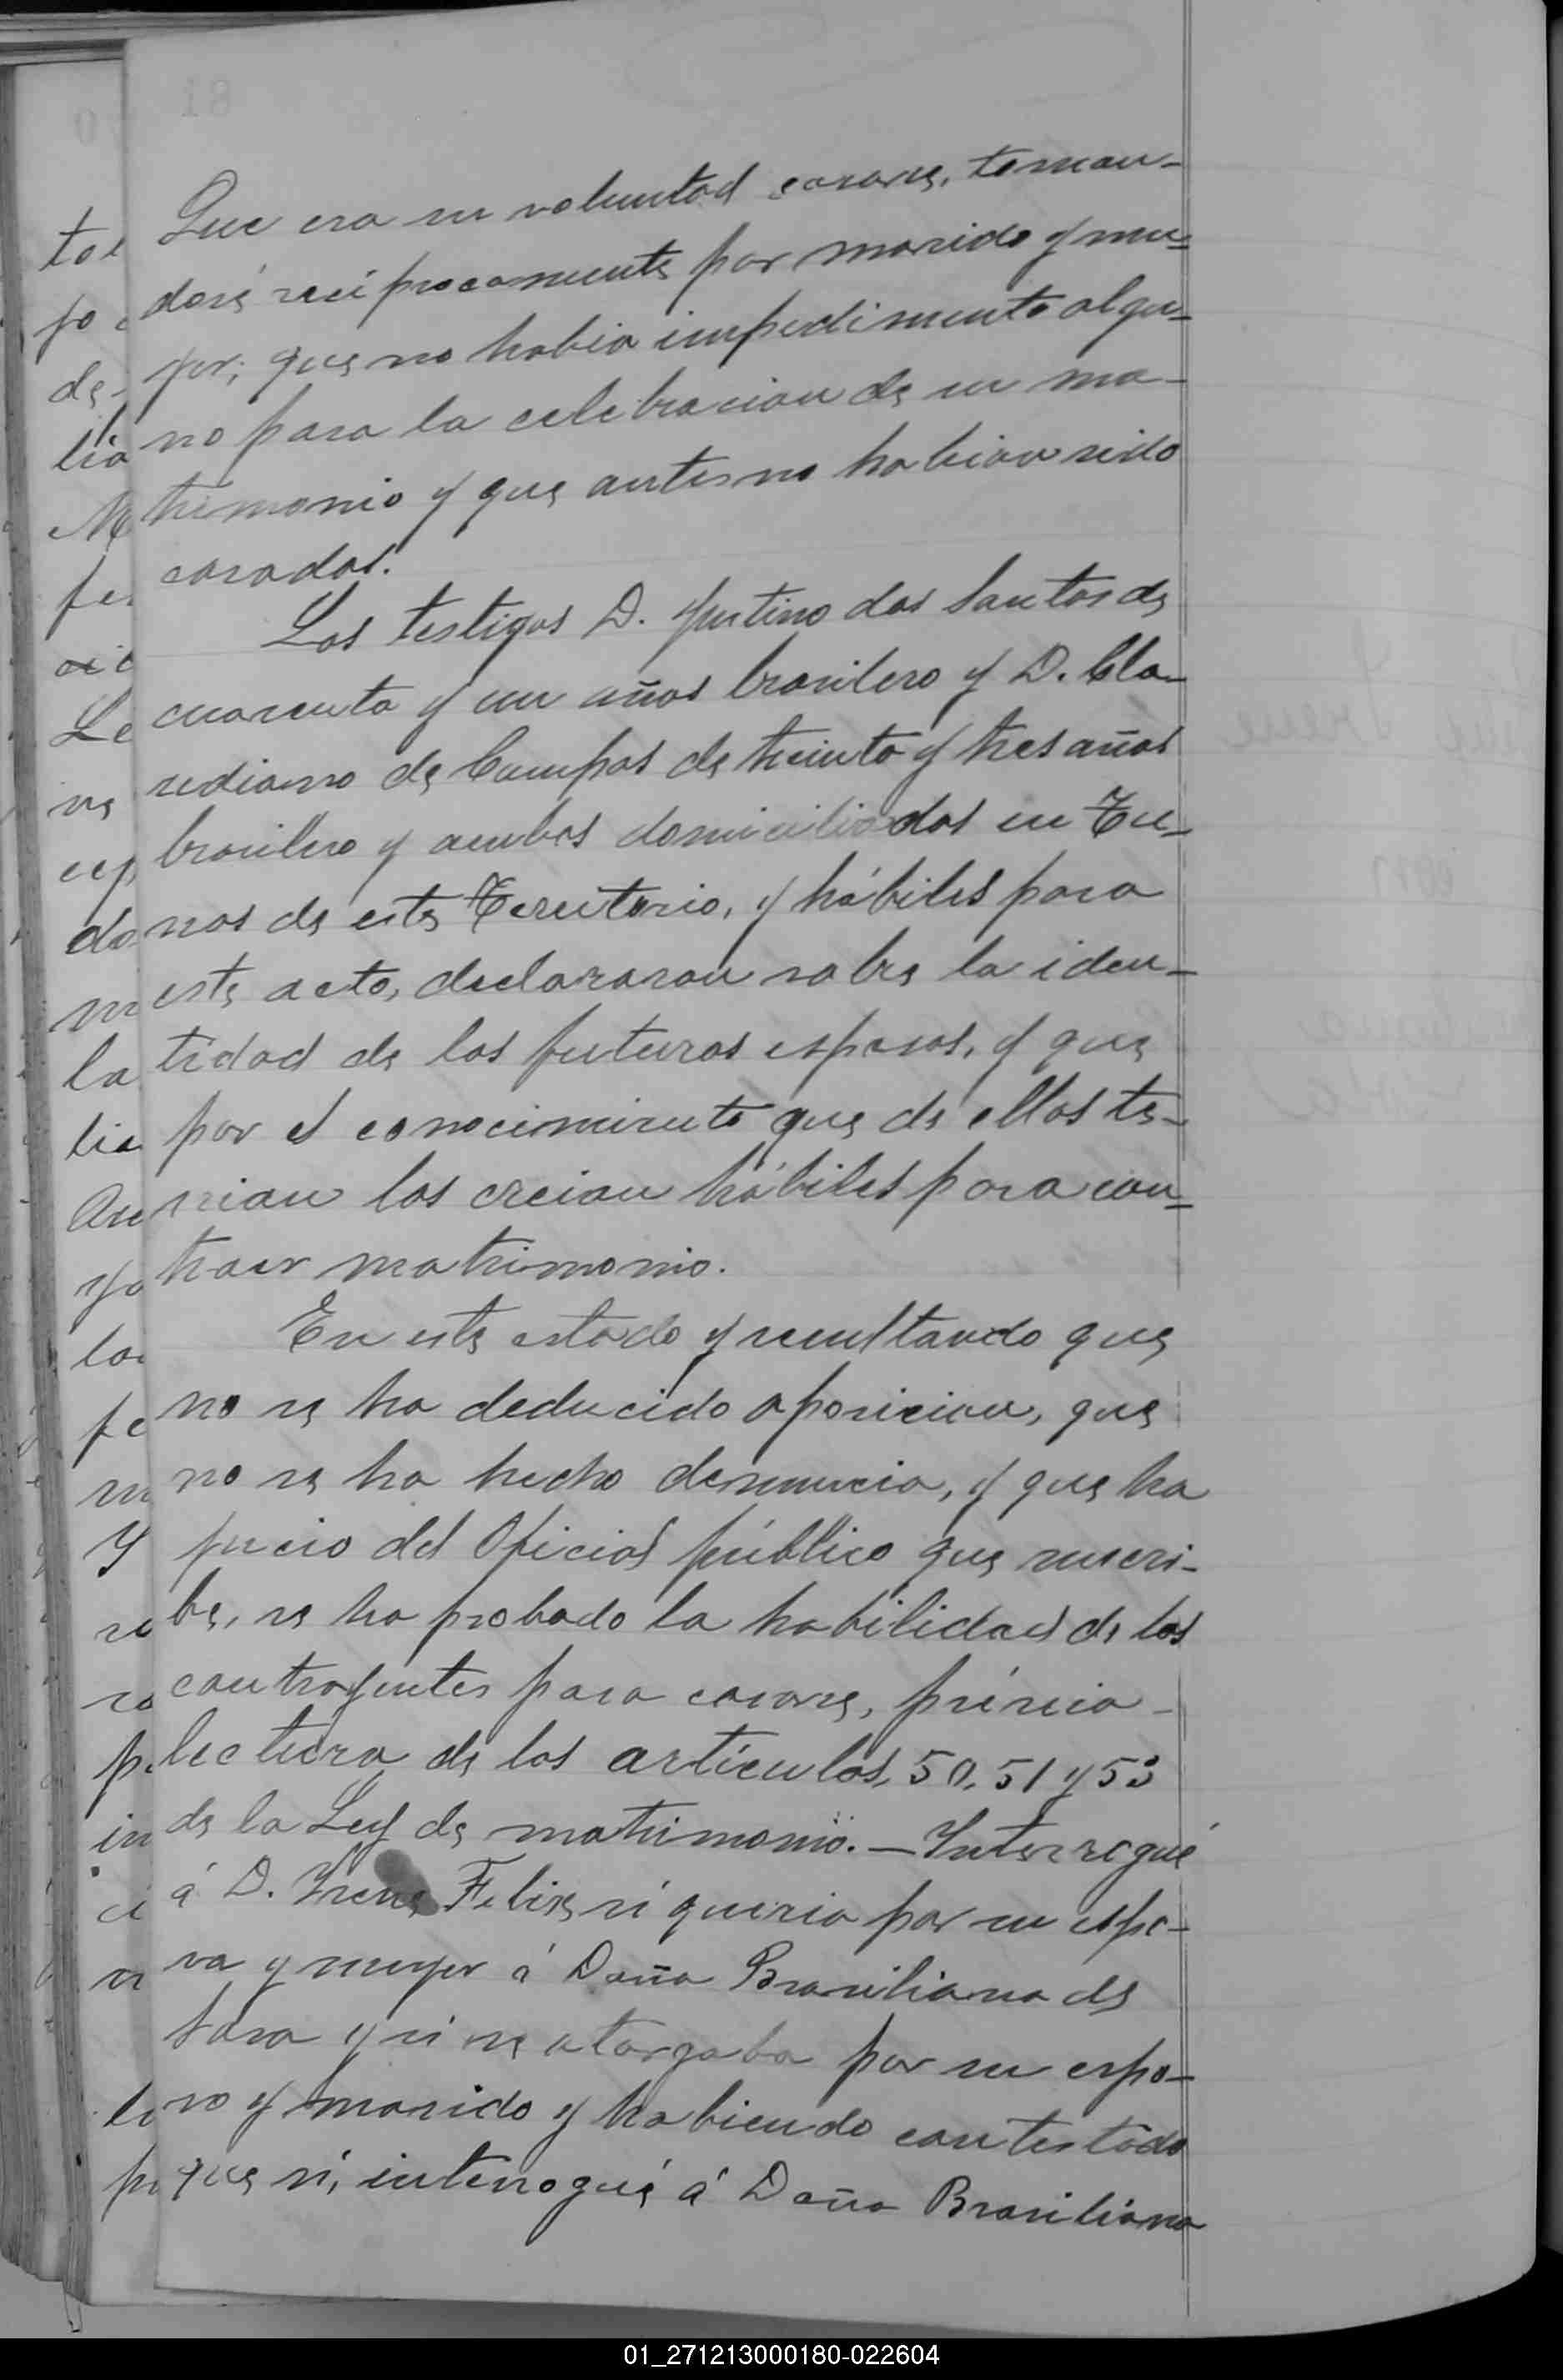 Que era su voluntad casarse, toman-
dose recíprocamente por marido y mu-
jer; que no habia impedimento algu-
no para la celebracion de su ma-
trimonio y que antes no habian sido
casados.
Los testigos D. Justino dos Santos de
cuarenta y un años brasilero y D. Cla-
rediano de Campos de treinta y tres años
brasilero y ambos domiciliados en Tu-
nas de este Territorio, y hábiles para
este acto, declararon sobre la iden-
tidad de los futuros esposos, y que
por el conocimiento que de ellos te-
nian los creian hábiles para con-
traer matrimonio.
En este estado y resultando que
no se ha deducido oposicion, que
no se ha hecho denuncia, y que ha
juicio del Oficial público que suscri-
be, se ha probado la habilidad de los
contrayentes para casarse, prévia
lectura de los artículos, 50, 51 y 53
de la Ley de matrimonio. — Interrogué
á D. Irene Felix, si queria por su espo-
sa y mujer á Doña Brasiliana de
Sosa y si se otorgaba por su espo-
so y marido y habiendo contestado
que si, interrogué á Doña Brasiliana
01_271213000180-022604